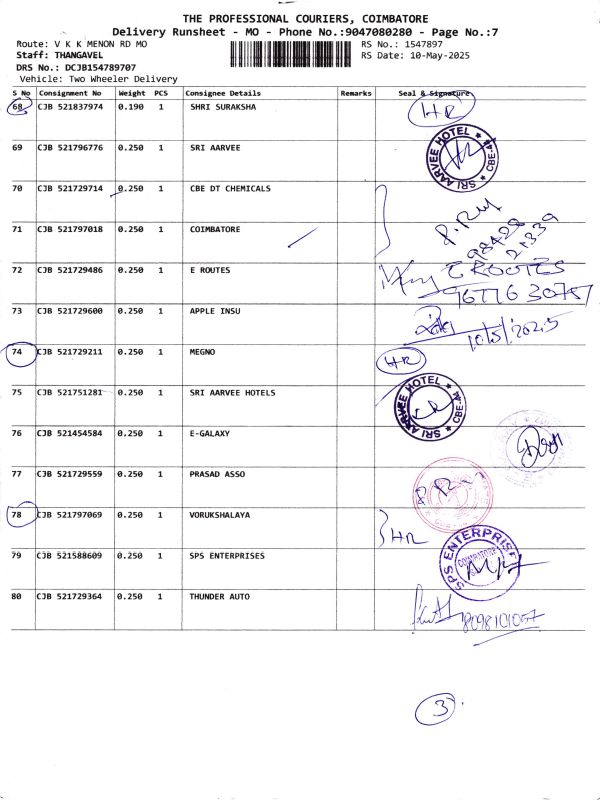 THE PROFESSIONAL COURIERS, COIMBATORE
Delivery Runsheet - MO - Phone No.:9047080280 - Page No.:7
Route: V K K MENON RD MO RS No.: 1547897
Staff: THANGAVEL RS Date: 10-May-2025
DRS No.: DCJB154789707
Vehicle: Two Wheeler Delivery
S No Consignment No Weight PCS Consignee Details Remarks Seal & Signature
68 CJB 521837974 0.190 1 SHRI SURAKSHA HR
69 CJB 521796776 0.250 1 SRI AARVEE SRI AARVEE HOTEL CBE-44
70 CJB 521729714 0.250 1 CBE DT CHEMICALS
71 CJB 521797018 0.250 1 COIMBATORE 98428 21339
72 CJB 521729486 0.250 1 E ROUTES E ROOTES
73 CJB 521729600 0.250 1 APPLE INSU 10/5/2025
74 CJB 521729211 0.250 1 MEGNO HR
75 CJB 521751281 0.250 1 SRI AARVEE HOTELS SRI AARVEE HOTEL CBE-44
76 CJB 521454584 0.250 1 E-GALAXY
77 CJB 521729559 0.250 1 PRASAD ASSO
78 CJB 521797069 0.250 1 VORUKSHALAYA HR
79 CJB 521588609 0.250 1 SPS ENTERPRISES SPS ENTERPRISE COIMBATORE
80 CJB 521729364 0.250 1 THUNDER AUTO 8098101057
3